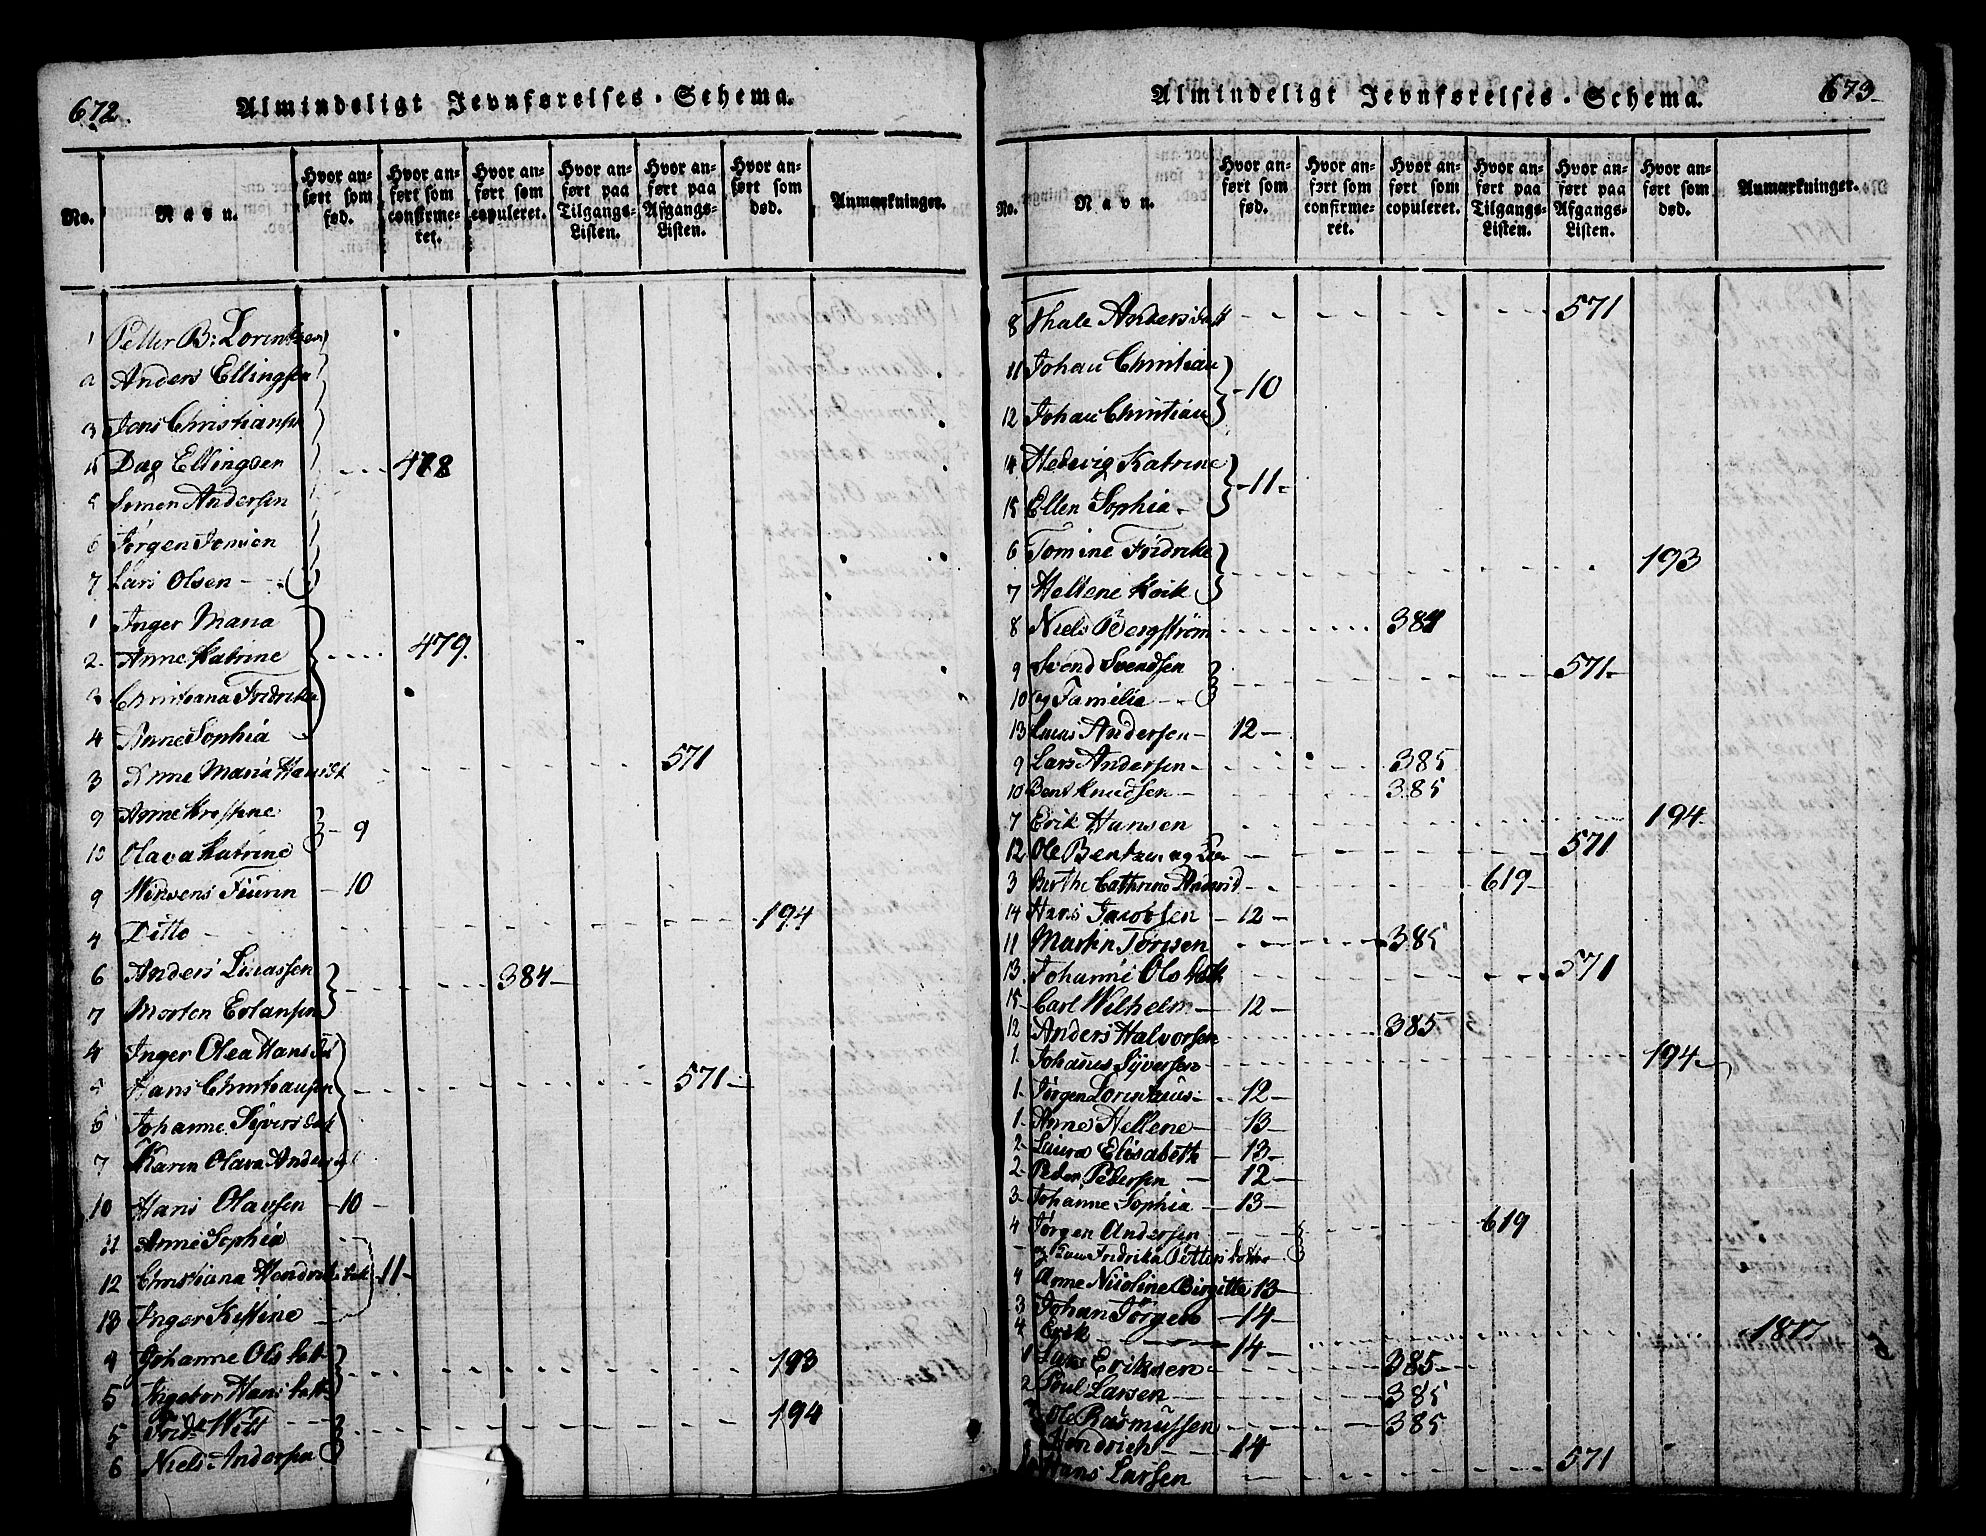 672.
Almindeligt Jevnførelses-Schema.
No.
Navn.
Hvor anført som fød.
Hvor anført som confirmeret.
Hvor anført som copuleret.
Hvor anført paa Tilgangs-Listen.
Hvor anført paa Afgangs-Listen.
Hvor anført som død.
Anmærkninger.
1 Petter B: Lorentzen
2 Anders Ellingsen
3 Jens Christians
4 Dag Ellingsen 478
5 Simen Andersen
6 Jørgen Jonsen
7 Lars Olsen
1 Inger Maria
2 Anne Katrine 479
3 Christiana Fridrika
4 Anne Sophia
3 Anne Maria 571
9 Anne Kirstine
10 Olava Katrine 9
9 10
4 Ditto 194
6 Anders Linassen 384
7 Morten Erlansen
4 Inger Olea Hans
5 Hans Christiansen 571
6 Johanne Siversdat
7 Karen Olava Anders
10 Hans Olavsen 10
11 Anne Sophia
12 Christiana Hendrik 11
13 Inger Kistine
4 Johanne Ols datt 193
5 Ingebor Hans datt
5 Frid Witt 194
6 Niels Andersen
673
Almindeligt Jevnførelses-Schema.
No.
Navn.
Hvor anført som fød.
Hvor anført som confirmeret.
Hvor anført som copuleret.
Hvor anført paa Tilgangs-Listen.
Hvor anført paa Afgangs-Listen.
Hvor anført som død.
Anmærkninger.
8 Thale Andersdatt 571
11 Johan Christian 10
12 Johan Christian
14 Hedevig Katrine 11
15 Ellen Sophia
6 Tomine Fridrike 193
7 Hellene
8 Niels Bergstrøm 384
9 Svend Svendsen 571
10 og Familie
13 Andersen 12
9 Lars Andersen 385
10 Bent Knudsen 385
7 Erik Hansen 194
12 Ole Bentzen og 571
3 Birthe Cathrine Andersd 619
14 Hans Jacobsen 12
11 Marten Torisen 385
13 Johanne Ols datt 571
15 Carl Wilhelm 12
12 Anders Halvorsen 385
1 Johanes Syversen 194
1 Jørgen Lorentzius 12
1 Anne Hellene 13
2 Laura Elisabeth 13
2 Peder Pedersen 12
3 Johanne Sophia 13
4 Jørgen Andersen 619
og Fridrika Petters datter
4 Anne Nicoline Birgitte 13
3 Johan Jørgen 14
4 Erik 14 1817
1 Lars Eriksen 385
2 Poul Larsen 385
Ole Rasmussen 385
Hendrich 14
Hans Larsen 571